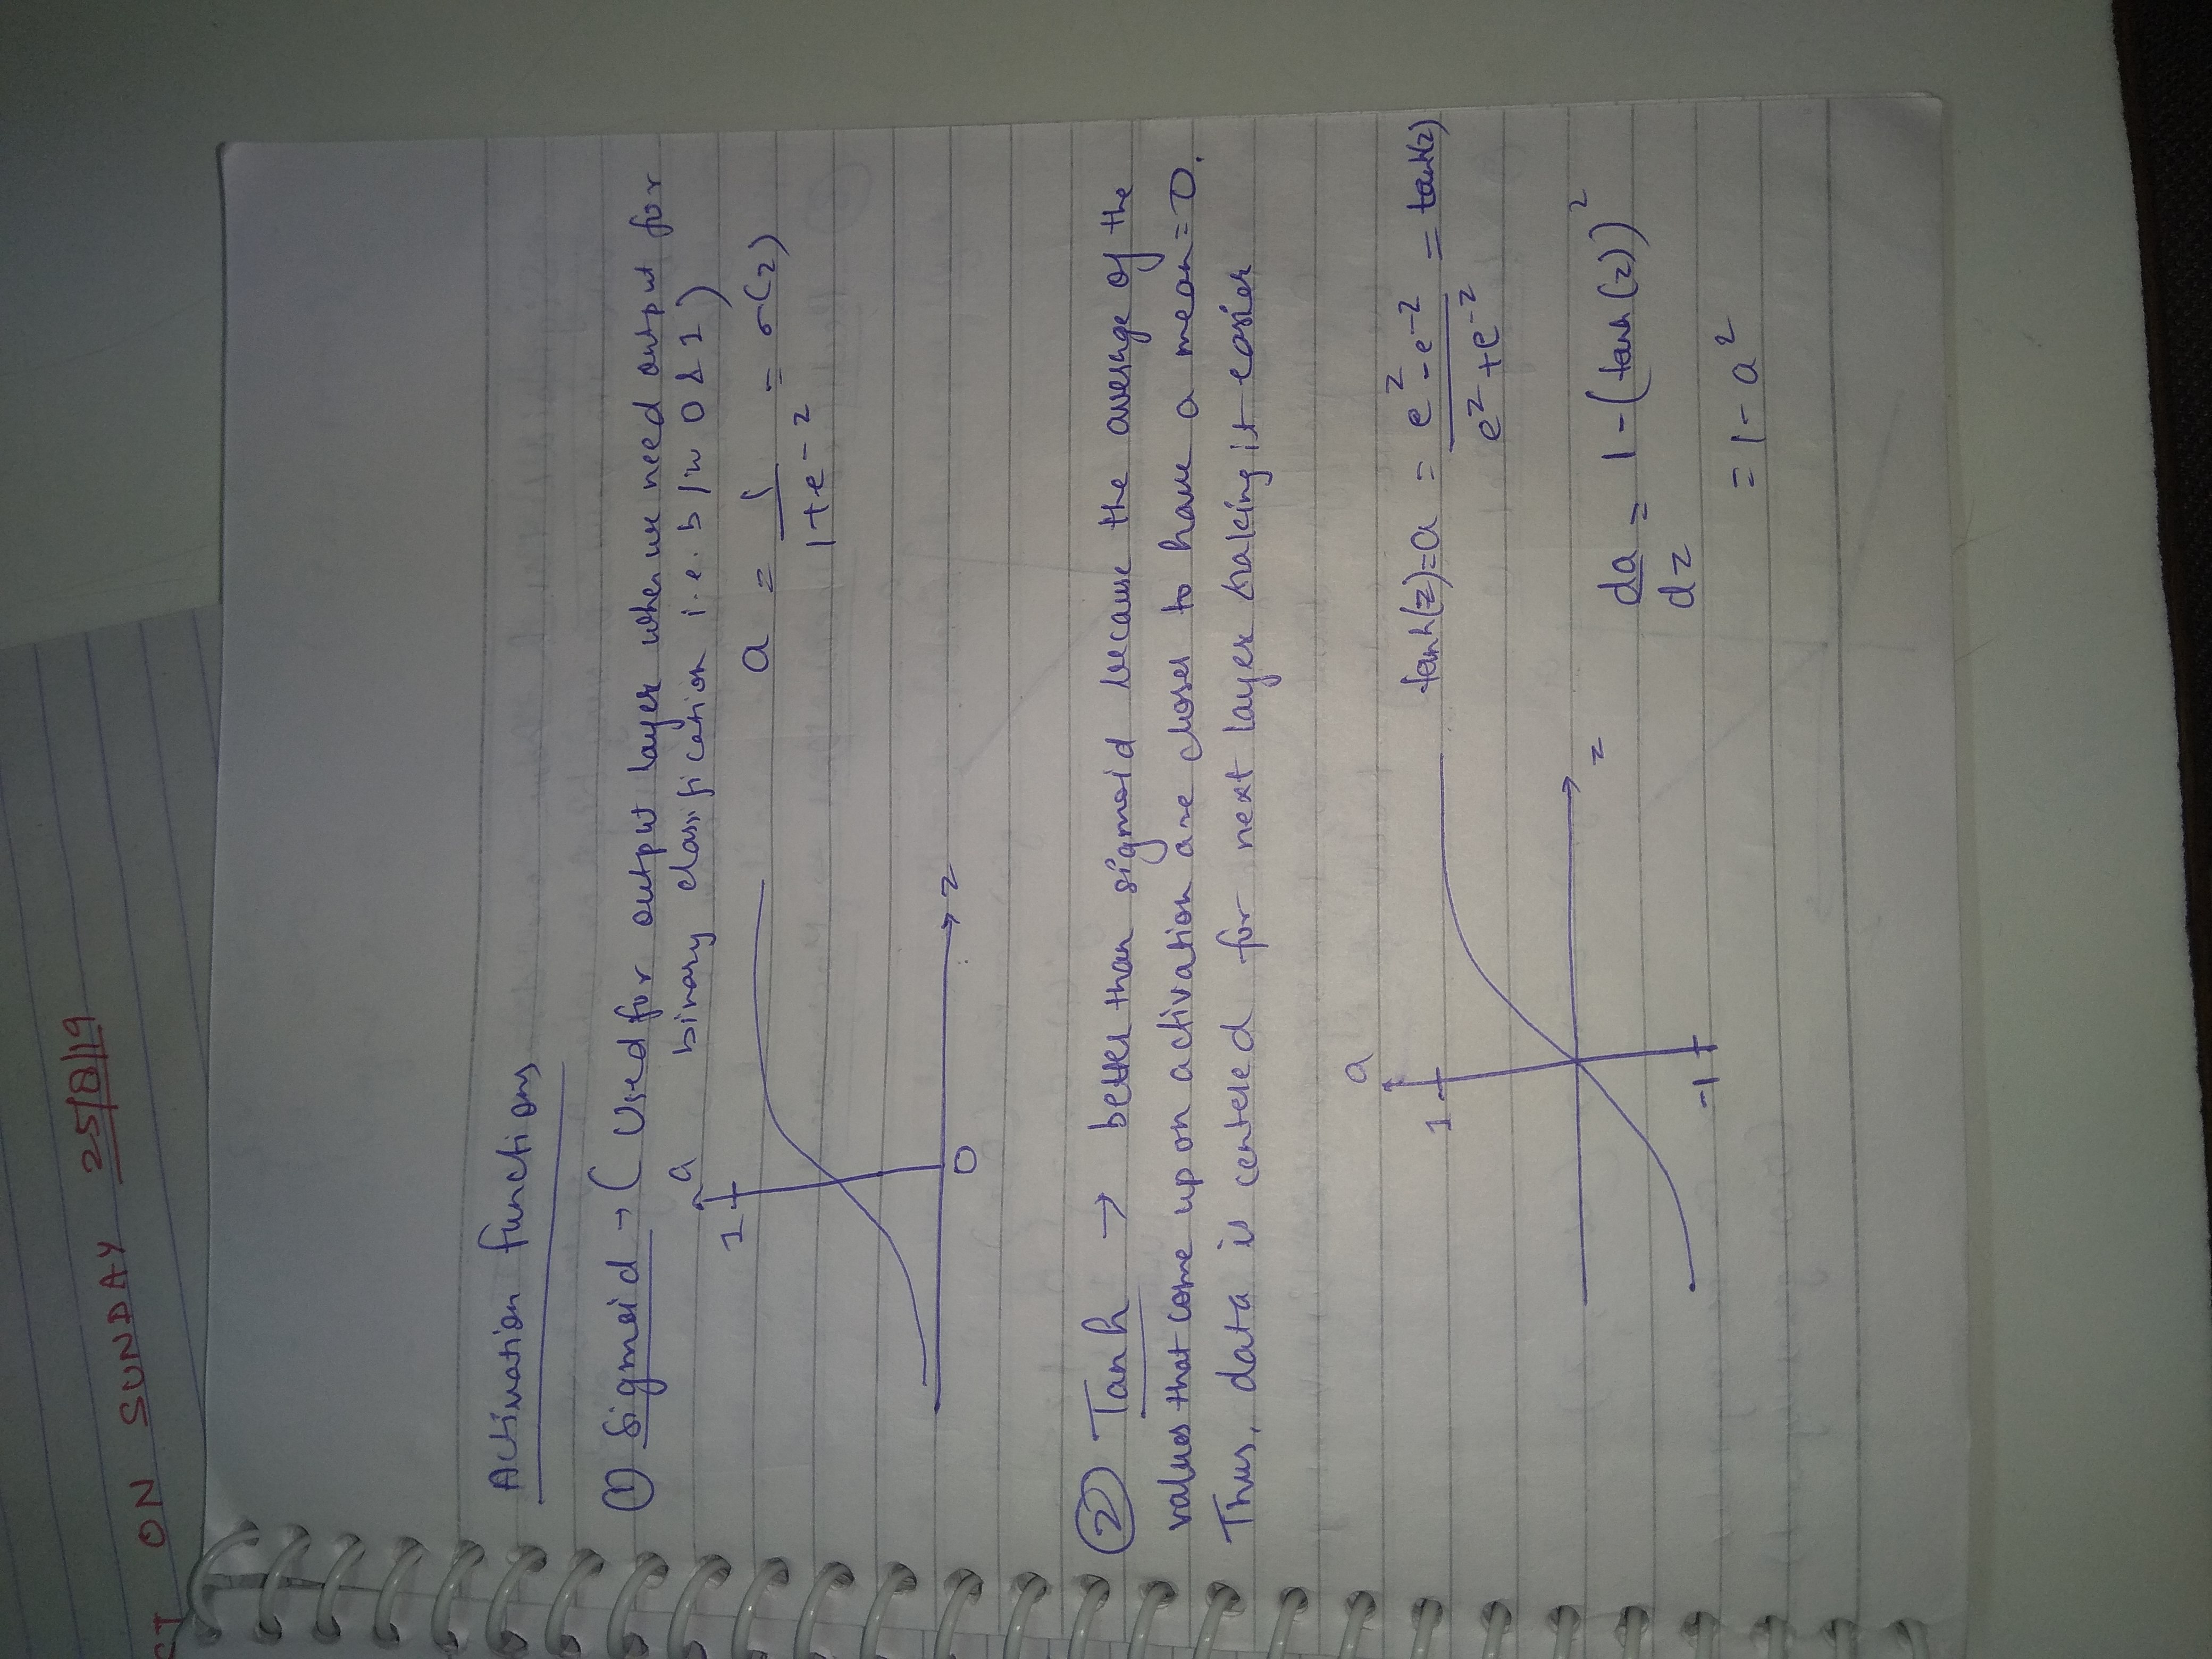 ON SUNDAY 25/8/19
Activation functions
① Sigmoid → ( Used for output layer when we need output for
binary classification i.e. b/w 0 & 1 )
a
1
a = 1 / 1+e^-z = σ(z)
0
z
② Tanh → better than sigmoid because the average of the
values that come up on activation are closer to have a mean=0.
Thus, data is centered for next layer making it easier
a
1
tanh(z)=a = e^z - e^-z / e^z + e^-z = tanh(z)
z
-1
da/dz = 1-(tanh(z))^2
= 1-a^2